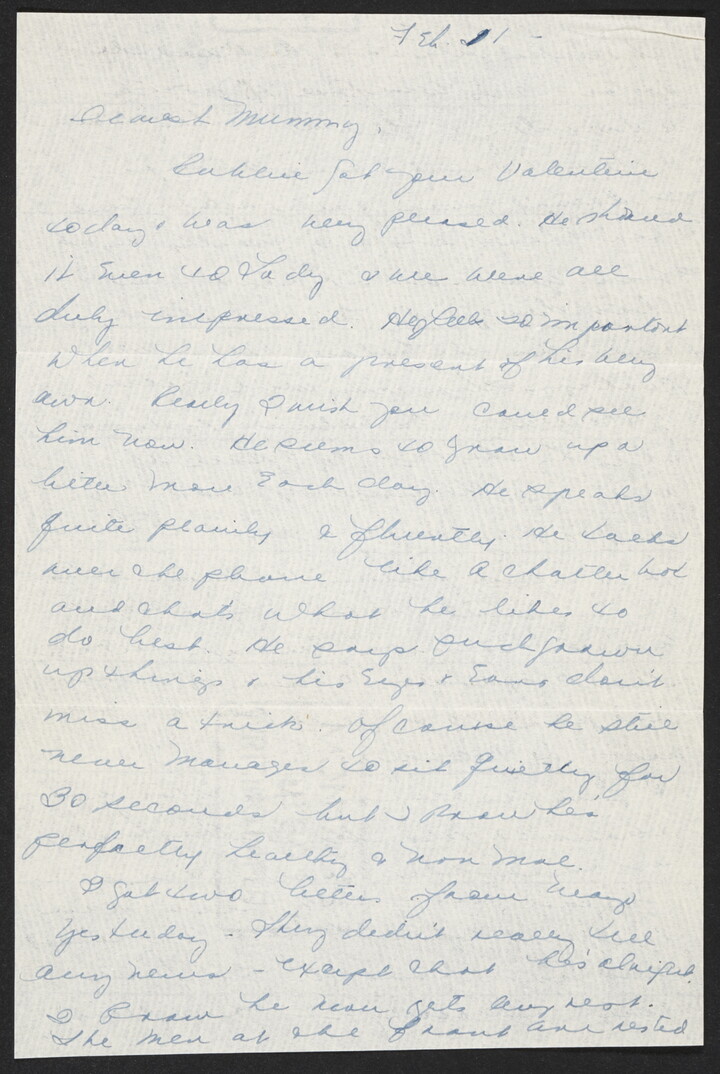 Feb. 21 -
Dearest Mummy,
Robbie got your Valentine
today & was very pleased. He showed
it even to Lady & we were all
duly impressed. He feels so important
when he has a present of his very
own. Really I wish you could see
him now. He seems to grow up a
little more each day. He speaks
quite plainly & fluently. He talks
over the phone like a chatter box
and that's what he likes to
do best. He says such grown
up things & his eyes & ears don't
miss a trick. Of course he still
never manages to sit quietly for
30 seconds but I know he's
perfectly healthy & normal.
I got two letters from
yesterday - They didn't really tell
any news - except that he's alright.
I know he now gets any rest.
The men at the front are rested